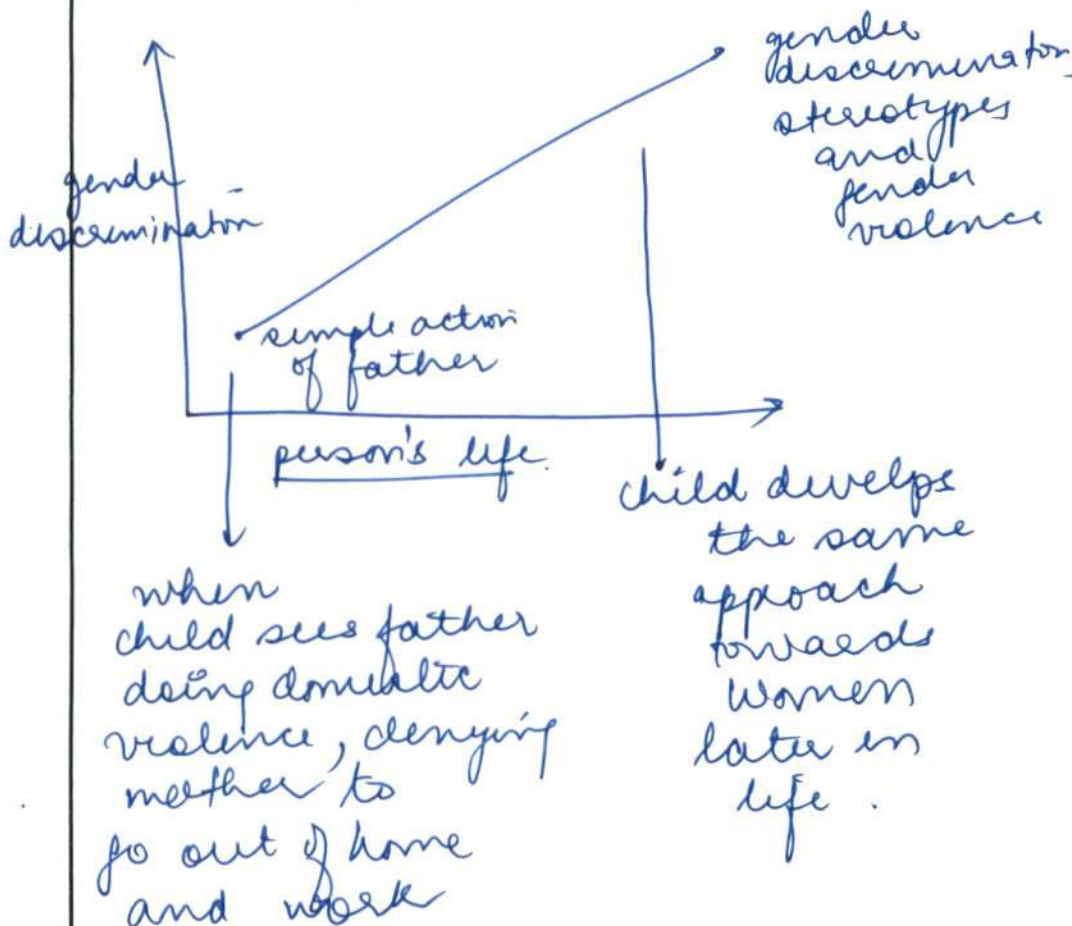 gender
discriminaton
gender
discriminaton
stereotypes
and
gender
violence
simple action
of father
person's life.
when
child sees father
doing domestic
violence, denying
mother to
go out of home
and work
child develps
the same
approach
towards
women
later in
life.